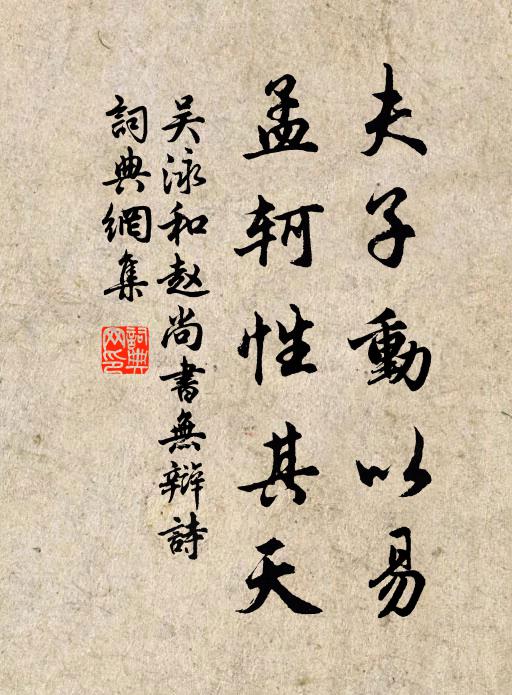 夫子動以易
孟軻性其天
吴泳和趙尚書無辯詩
詞典網集
詞典
网印